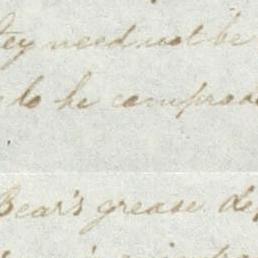 they need not be
to be comprod
Bear's grease de